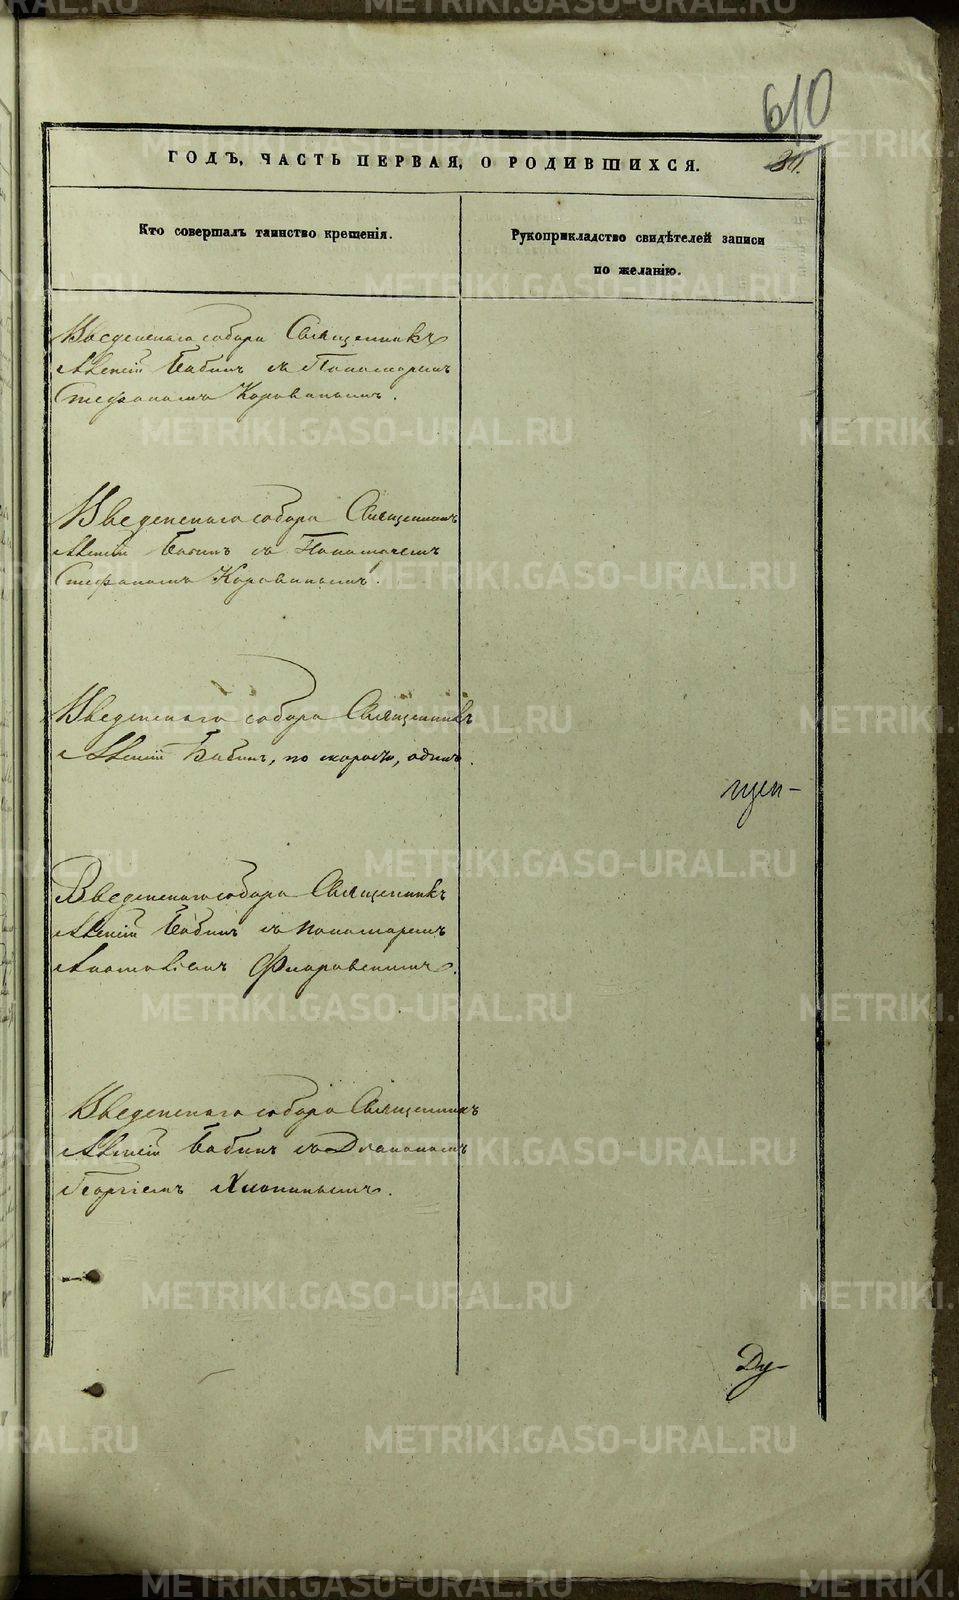 610
ГОДЪ, ЧАСТЬ ПЕРВАЯ, О РОДИВШИХСЯ.
Кто совершалъ таинство крещенія.
Рукоприкладство свидѣтелей записи
по желанію.
Введенскаго собора Священникъ
Алексій Бабинъ съ Пономаремъ
Стефаномъ Коровинымъ.
Введенскаго собора Священникъ
Алексій Бабинъ съ Пономаремъ
Стефаномъ Коровинымъ.
Введенскаго собора Священникъ
Алексій Бабинъ, по скорости, одинъ.
Введенскаго собора Священникъ
Алексій Бабинъ съ пономаремъ
Анатоліемъ Флоровскимъ.
Введенскаго собора Священникъ
Алексій Бабинъ съ Діакономъ
Георгіемъ Хлопинымъ.
Ду-
METRIKI.GASO-URAL.RU